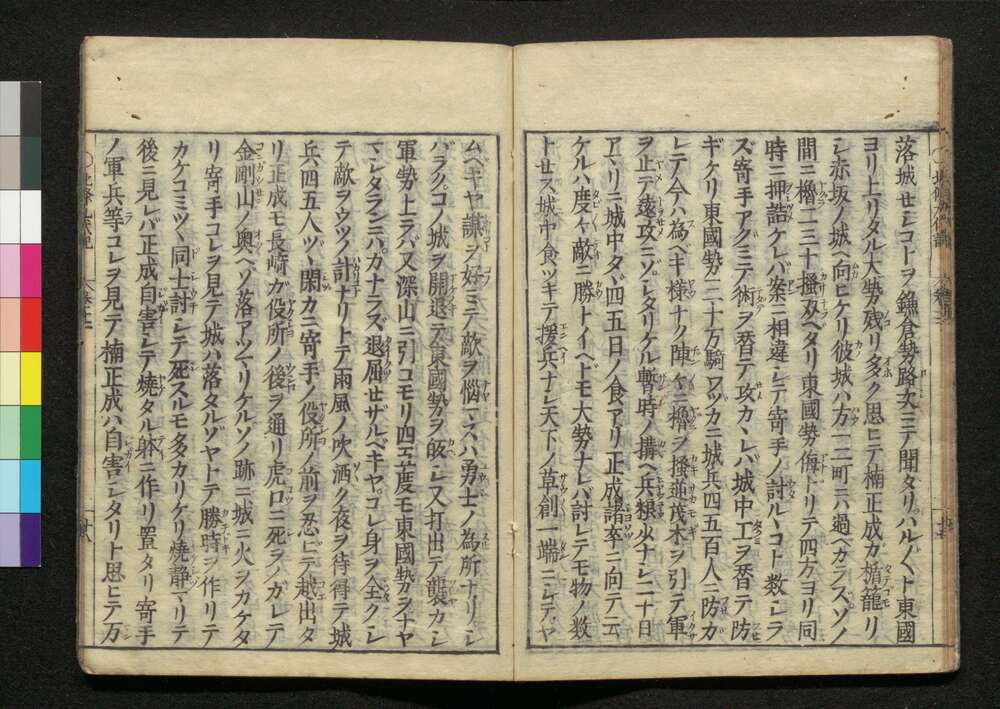 落城セシコトヲ鎌倉勢路次ニテ聞タリハル〱ト東國
ヨリ上リタル大勢殘リ多ク思ヒテ楠正成カ楯籠リ
シ赤坂ノ城ヘ向ヒケリ彼城ハ方一二町ニハ過ヘカラスソノ
間ニ櫓二三十掻双ヘタリ東國勢侮ドリテ四方ヨリ同
時ニ押詰ケレバ案ニ相違シテ寄手ノ討ルヽコト数シラ
ズ寄手アグミテ術ヲ替テ攻カヽレバ城中工ヲ替テ防
ギケリ東國勢二十万騎ワツカニ城兵四五百人ニ防カ
レテ今ハ為ベキ様ナク陣々ニ櫓ヲ掻逆茂木ヲ引テ軍
ヲ止テ遠攻ニゾシタリケル暫時ノ搆ヘ兵粮少ナシ二十日
アマリニ城中タヾ四五日ノ食アリ正成諸卒ニ向テ云
ケルハ度々敵ニ勝トイヘドモ大勢ナレバ討レテモ物ノ数
トセス城中食ツキテ援兵ナシ天下ノ草創一端ニシテヤ
ムヘキヤ謀ヲ好ミテ敵ヲ悩マスハ勇士ノ為所ナリシ
バラクコノ城ヲ開退テ東國勢ヲ皈シ又打出テ襲カシ
軍勢上ラバ又深山ニ引コモリ四五度モ東國勢ヲナヤ
マシタランニハカナラズ退屈セザルベキヤコレ身ヲ全クシ
テ敵ヲウツノ計ナリトテ雨風ノ吹洒ク夜ヲ待得テ城
兵四五人ツヽ閑カニ寄手ノ役所ノ前ヲ忍ヒテ越出タ
リ正成モ長﨑カ役所ノ後ヲ通リ虎口ニ死ヲノガレテ
金剛山ノ奥ヘソ落アツマリケルソノ跡ニ城ニ火ヲカケタ
リ寄手コレヲ見テ城ハ落タルゾヤトテ勝時ヲ作リテ
カケコミツヽ同士討シテ死スルモ多カリケリ燒静マリテ
後ニ見レバ正成自害シテ燒タル躰ニ作リ置タリ寄手
ノ軍兵等コレヲ見テ楠正成ハ自害シタリト思ヒテ万